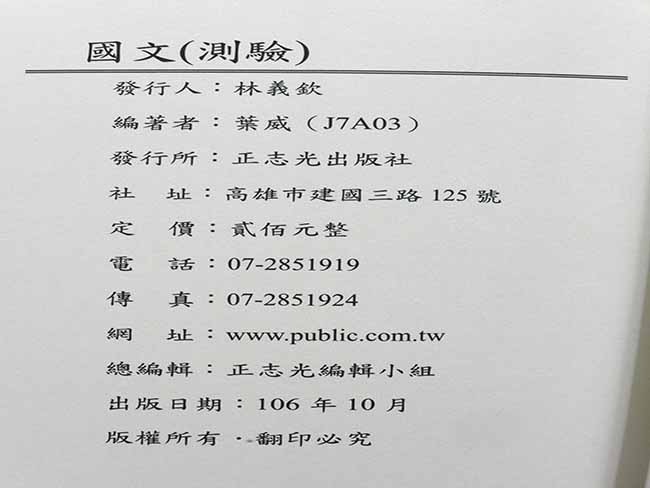 國文(測驗)
發行人：林義欽
編著者：葉威（J7A03）
發行所：正志光出版社
社　址：高雄市建國三路125號
定　價：貳佰元整
電　話：07-2851919
傳　真：07-2851924
網　址：www.public.com.tw
總編輯：正志光編輯小組
出版日期：106年10月
版權所有・翻印必究